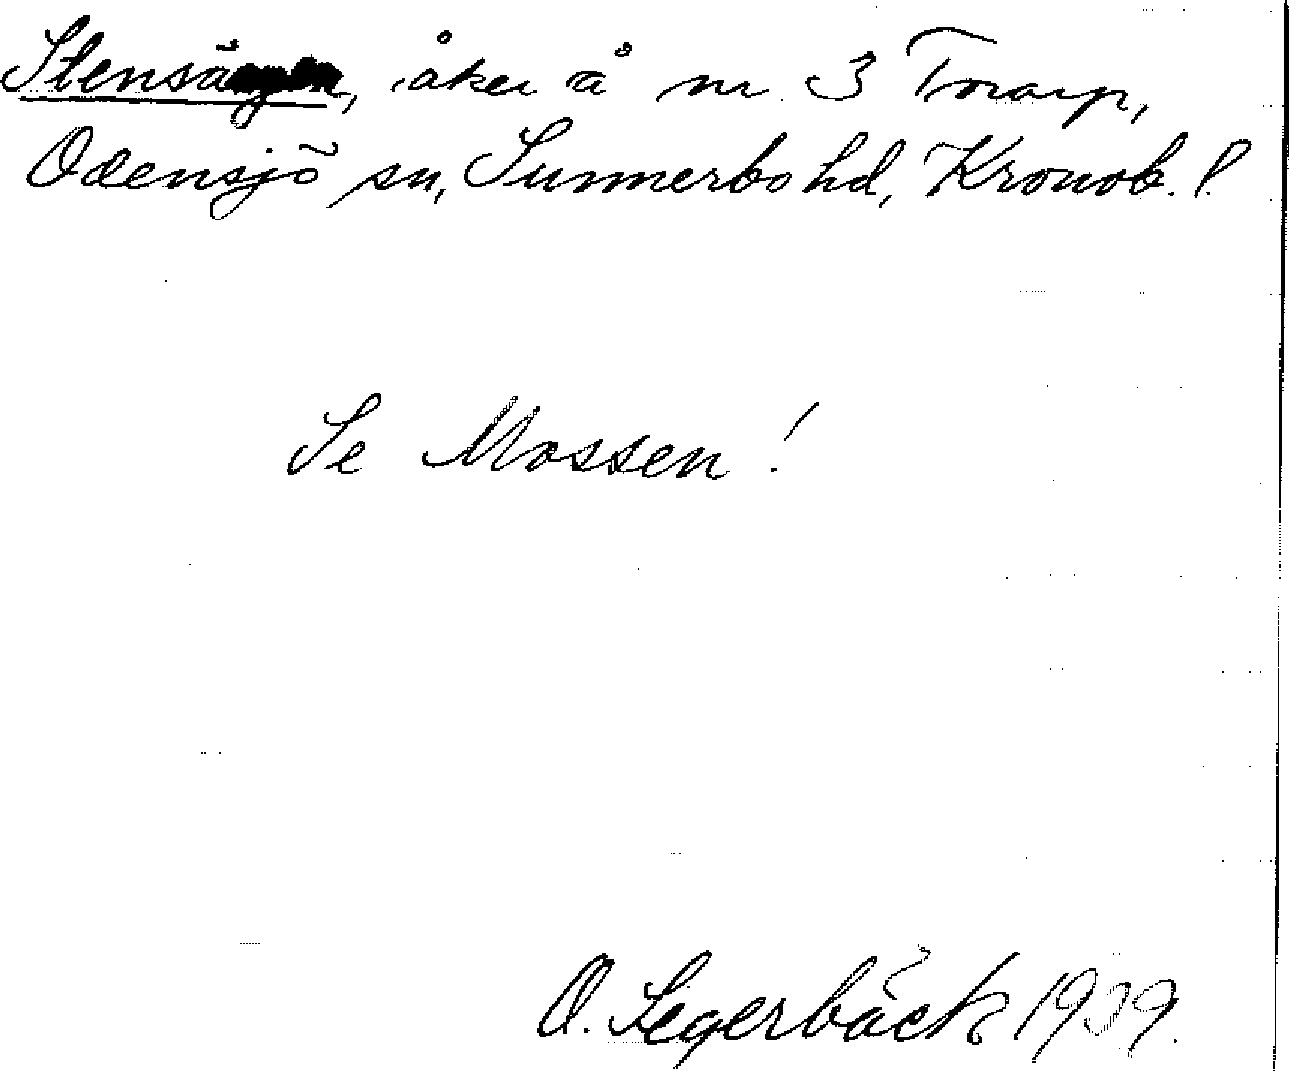 Stensängen, åker å nr 3 Torarp,
Odensjö sn, Sunnerbo hd, Kronob. l.
Se Mossen!
O. Segerbäck 1939.